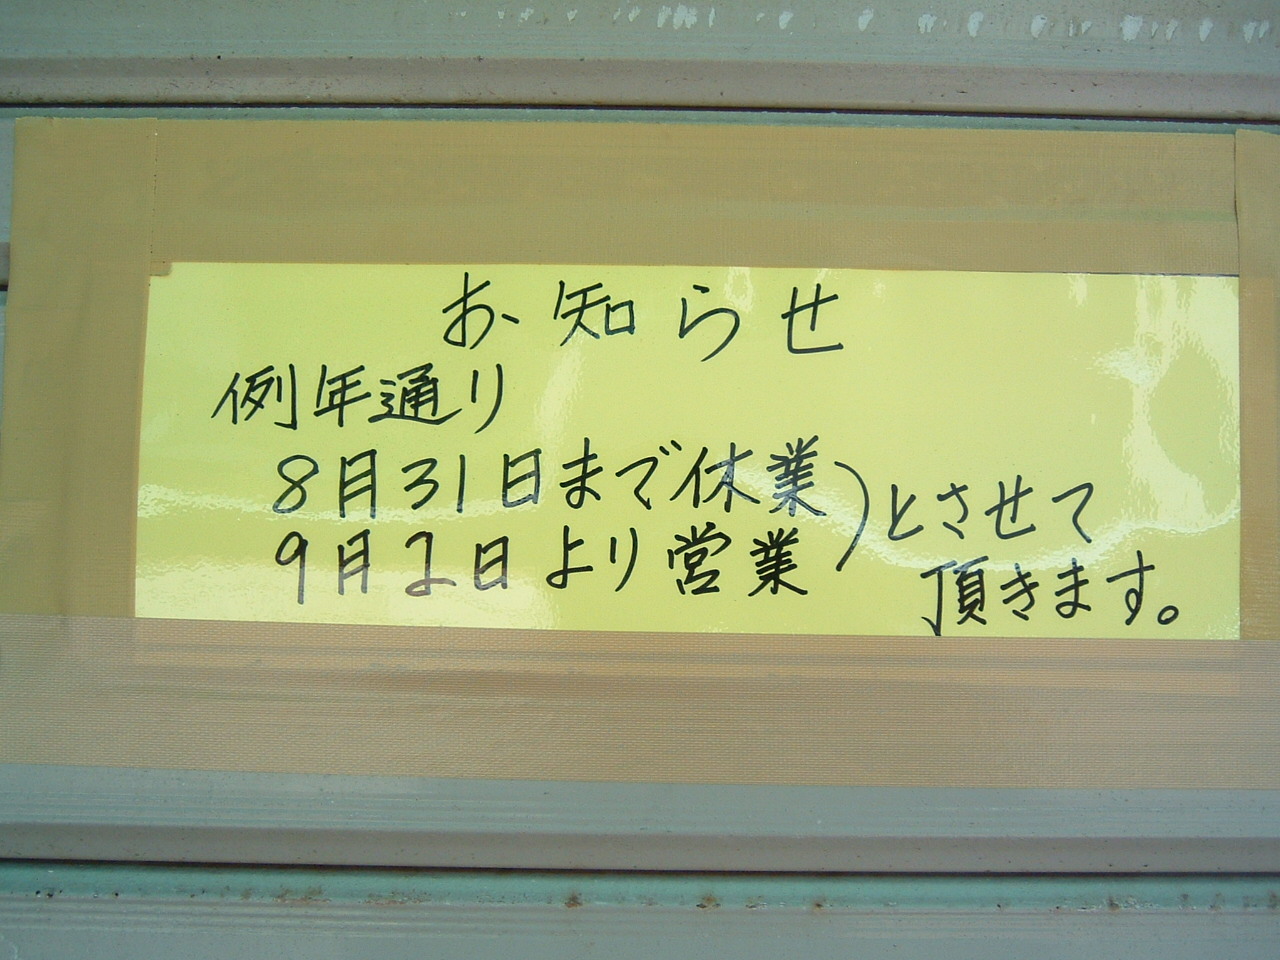 お知らせ
例年通り
8月31日まで休業
9月2日より営業
)とさせて
頂きます。